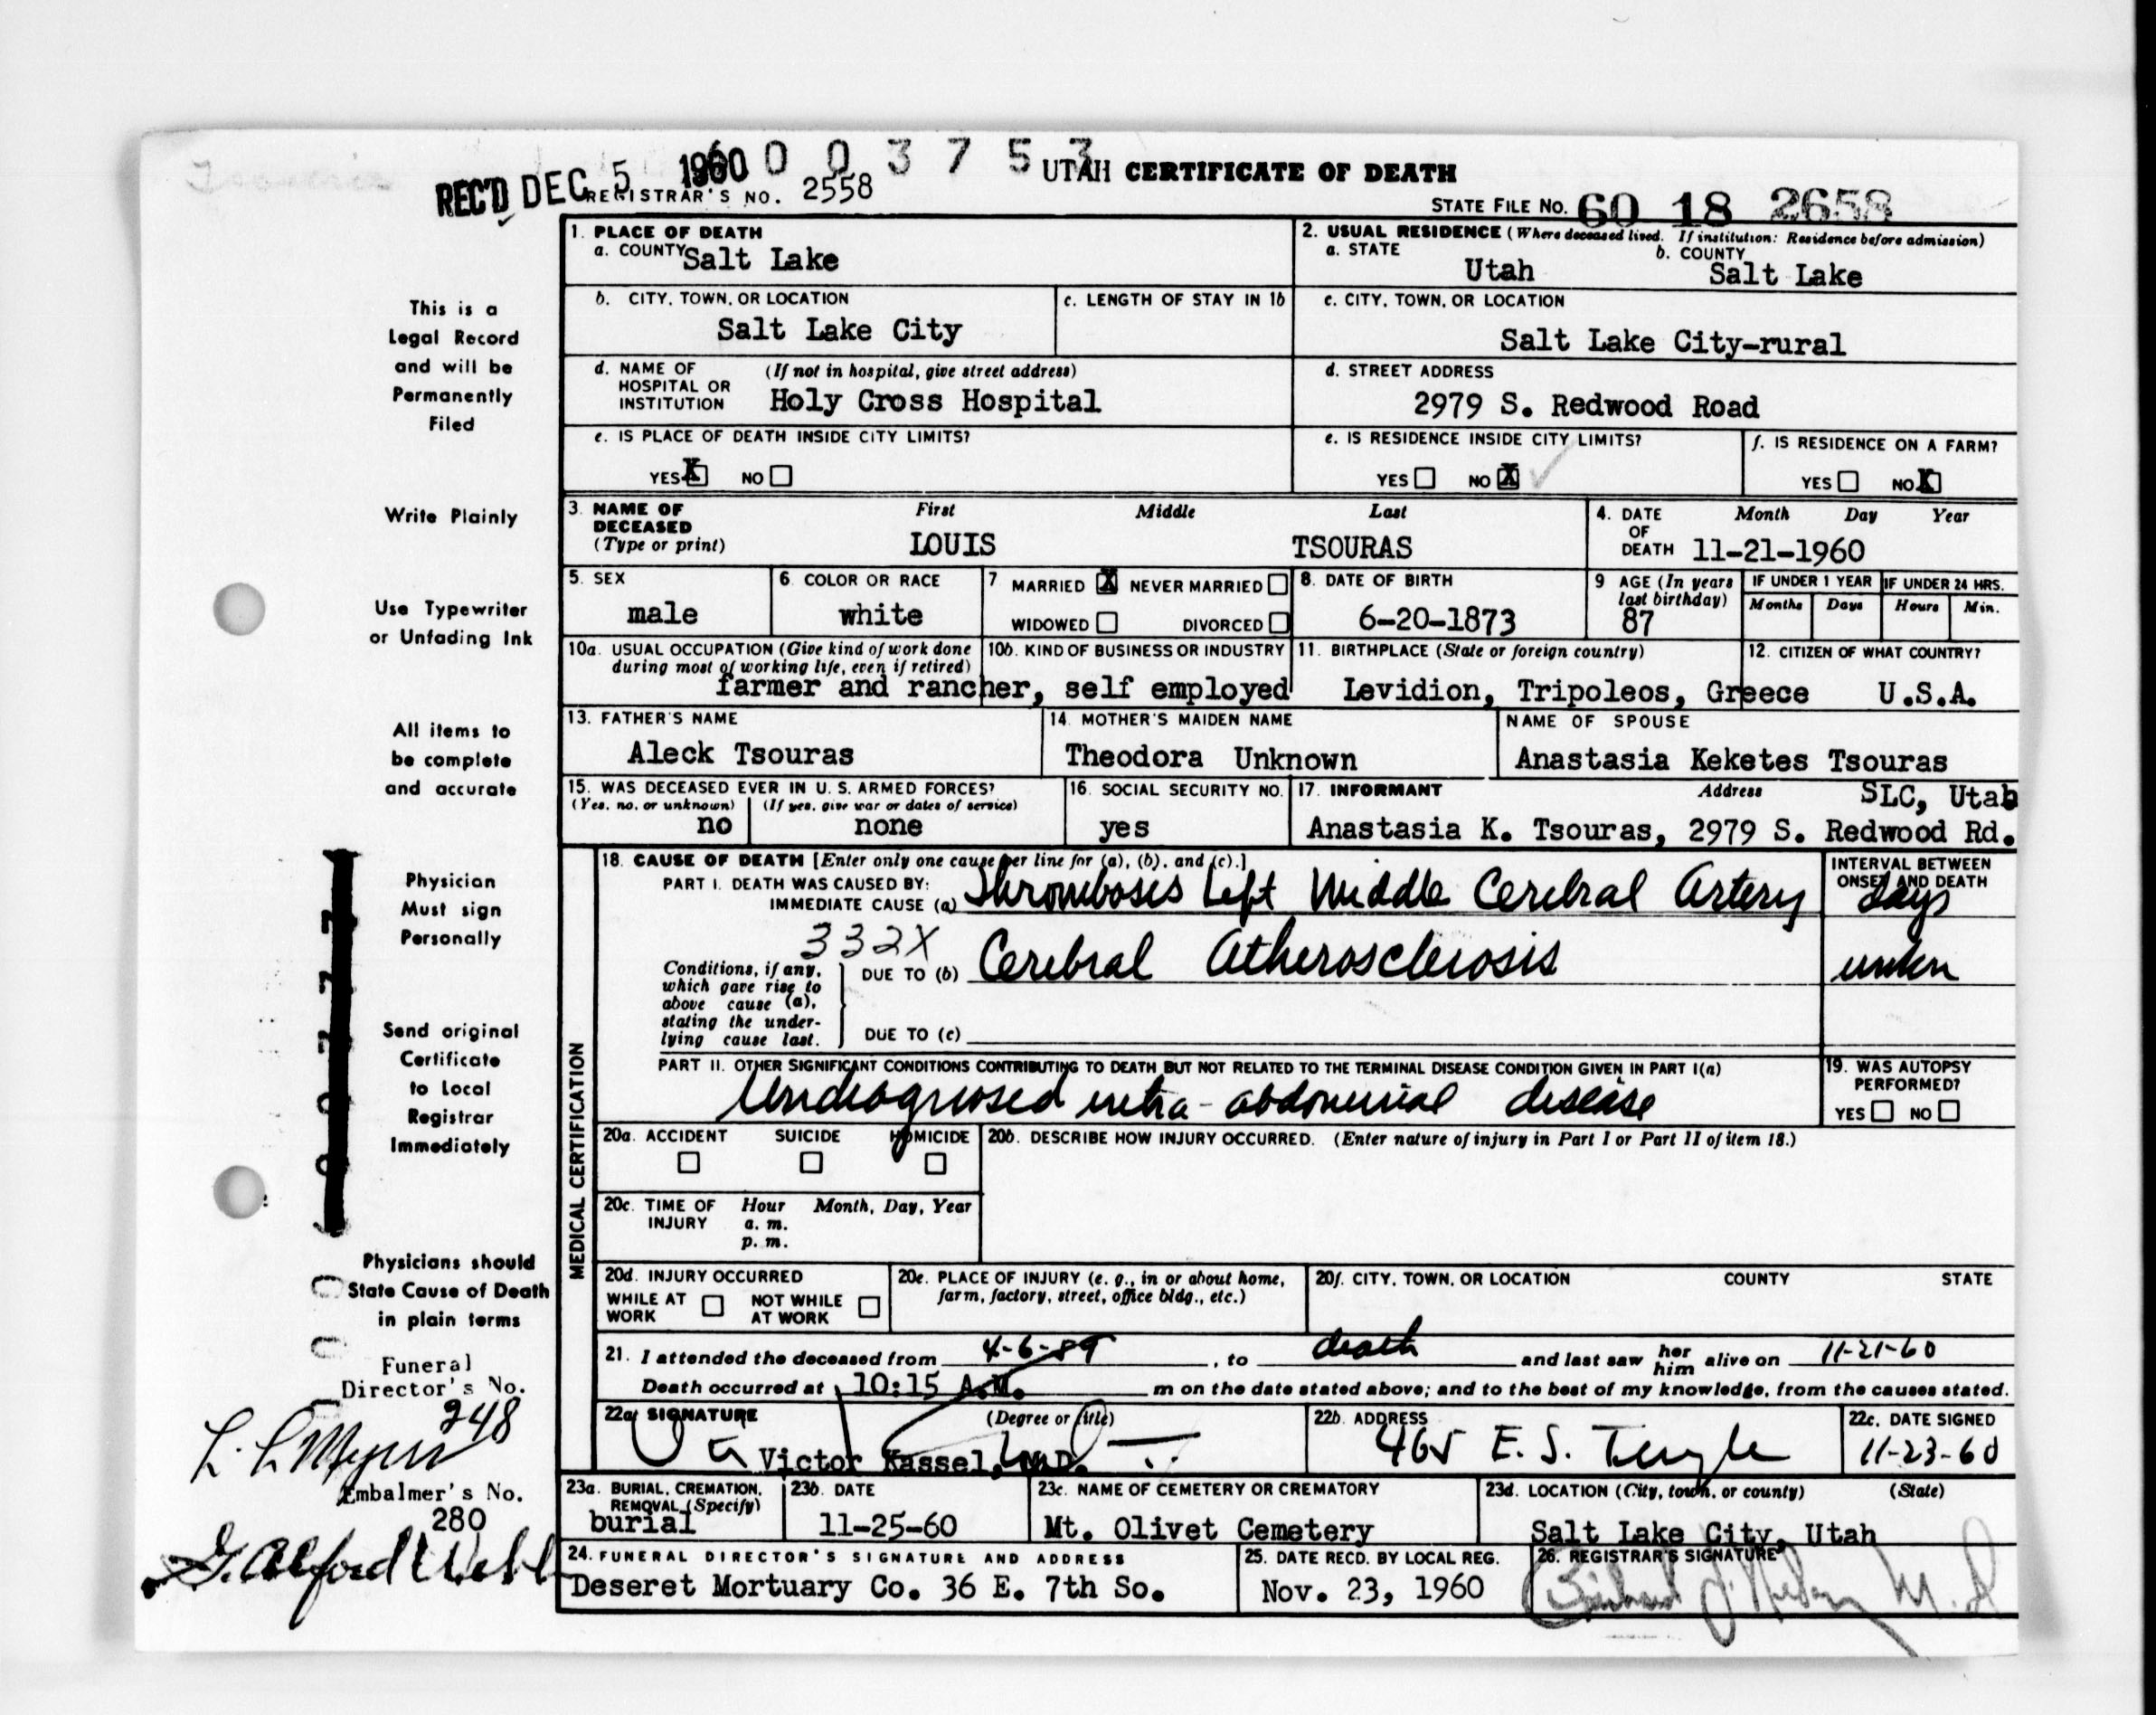 REC'D DEC 5 1960 0 0 3 7 5 3 UTAH CERTIFICATE OF DEATH
REGISTRAR'S NO. 2558
STATE FILE NO. 60 18 2658
1. PLACE OF DEATH
a. COUNTY Salt Lake
2. USUAL RESIDENCE (Where deceased lived. If institution: Residence before admission)
a. STATE Utah b. COUNTY Salt Lake
b. CITY, TOWN, OR LOCATION Salt Lake City
c. LENGTH OF STAY IN 1b
c. CITY, TOWN, OR LOCATION Salt Lake City-rural
d. NAME OF HOSPITAL OR INSTITUTION (If not in hospital, give street address) Holy Cross Hospital
d. STREET ADDRESS 2979 S. Redwood Road
e. IS PLACE OF DEATH INSIDE CITY LIMITS?
YES X NO
e. IS RESIDENCE INSIDE CITY LIMITS?
YES NO X
f. IS RESIDENCE ON A FARM?
YES NO X
3. NAME OF DECEASED (Type or print) First Middle Last
LOUIS TSOURAS
4. DATE OF DEATH Month Day Year
11-21-1960
5. SEX male
6. COLOR OR RACE white
7 MARRIED X NEVER MARRIED
WIDOWED DIVORCED
8. DATE OF BIRTH 6-20-1873
9 AGE (In years last birthday) 87
IF UNDER 1 YEAR Months Days
IF UNDER 24 HRS. Hours Min.
10a. USUAL OCCUPATION (Give kind of work done during most of working life, even if retired)
10b. KIND OF BUSINESS OR INDUSTRY
farmer and rancher, self employed
11. BIRTHPLACE (State or foreign country) Levidion, Tripoleos, Greece
12. CITIZEN OF WHAT COUNTRY? U.S.A.
13. FATHER'S NAME Aleck Tsouras
14. MOTHER'S MAIDEN NAME Theodora Unknown
NAME OF SPOUSE Anastasia Keketes Tsouras
15. WAS DECEASED EVER IN U. S. ARMED FORCES?
(Yes, no, or unknown) (If yes, give war or dates of service)
no none
16. SOCIAL SECURITY NO. yes
17. INFORMANT Address SLC, Utah
Anastasia K. Tsouras, 2979 S. Redwood Rd.
MEDICAL CERTIFICATION
18. CAUSE OF DEATH [Enter only one cause per line for (a), (b), and (c).]
PART I. DEATH WAS CAUSED BY:
IMMEDIATE CAUSE (a) Thromboses Left Middle Cerebral Artery
INTERVAL BETWEEN ONSET AND DEATH
days
332X
Conditions, if any, which gave rise to above cause (a), stating the underlying cause last.
DUE TO (b) Cerebral Atherosclerosis
unkn
DUE TO (c)
PART II. OTHER SIGNIFICANT CONDITIONS CONTRIBUTING TO DEATH BUT NOT RELATED TO THE TERMINAL DISEASE CONDITION GIVEN IN PART I(a)
Undiagnosed intra-abdominal disease
19. WAS AUTOPSY PERFORMED?
YES NO
20a. ACCIDENT SUICIDE HOMICIDE
20b. DESCRIBE HOW INJURY OCCURRED. (Enter nature of injury in Part I or Part II of item 18.)
20c. TIME OF INJURY Hour Month, Day, Year
a. m.
p. m.
20d. INJURY OCCURRED
WHILE AT WORK NOT WHILE AT WORK
20e. PLACE OF INJURY (e. g., in or about home, farm, factory, street, office bldg., etc.)
20f. CITY, TOWN, OR LOCATION COUNTY STATE
21. I attended the deceased from 4-6-59, to death and last saw her him alive on 11-21-60
Death occurred at 10:15 A.M. m on the date stated above; and to the best of my knowledge, from the causes stated.
22a. SIGNATURE (Degree or title)
Victor Kassel, M.D.
22b. ADDRESS 465 E. S. Temple
22c. DATE SIGNED 11-23-60
23a. BURIAL, CREMATION, REMOVAL (Specify) burial
23b. DATE 11-25-60
23c. NAME OF CEMETERY OR CREMATORY Mt. Olivet Cemetery
23d. LOCATION (City, town, or county) (State)
Salt Lake City, Utah
24. FUNERAL DIRECTOR'S SIGNATURE AND ADDRESS
Deseret Mortuary Co. 36 E. 7th So.
25. DATE RECD. BY LOCAL REG.
Nov. 23, 1960
26. REGISTRAR'S SIGNATURE
This is a
Legal Record
and will be
Permanently
Filed
Write Plainly
Use Typewriter
or Unfading Ink
All items to
be complete
and accurate
Physician
Must sign
Personally
Send original
Certificate
to Local
Registrar
Immediately
Physicians should
State Cause of Death
in plain terms
Funeral
Director's No.
248
Embalmer's No.
280
G. Alford Webb